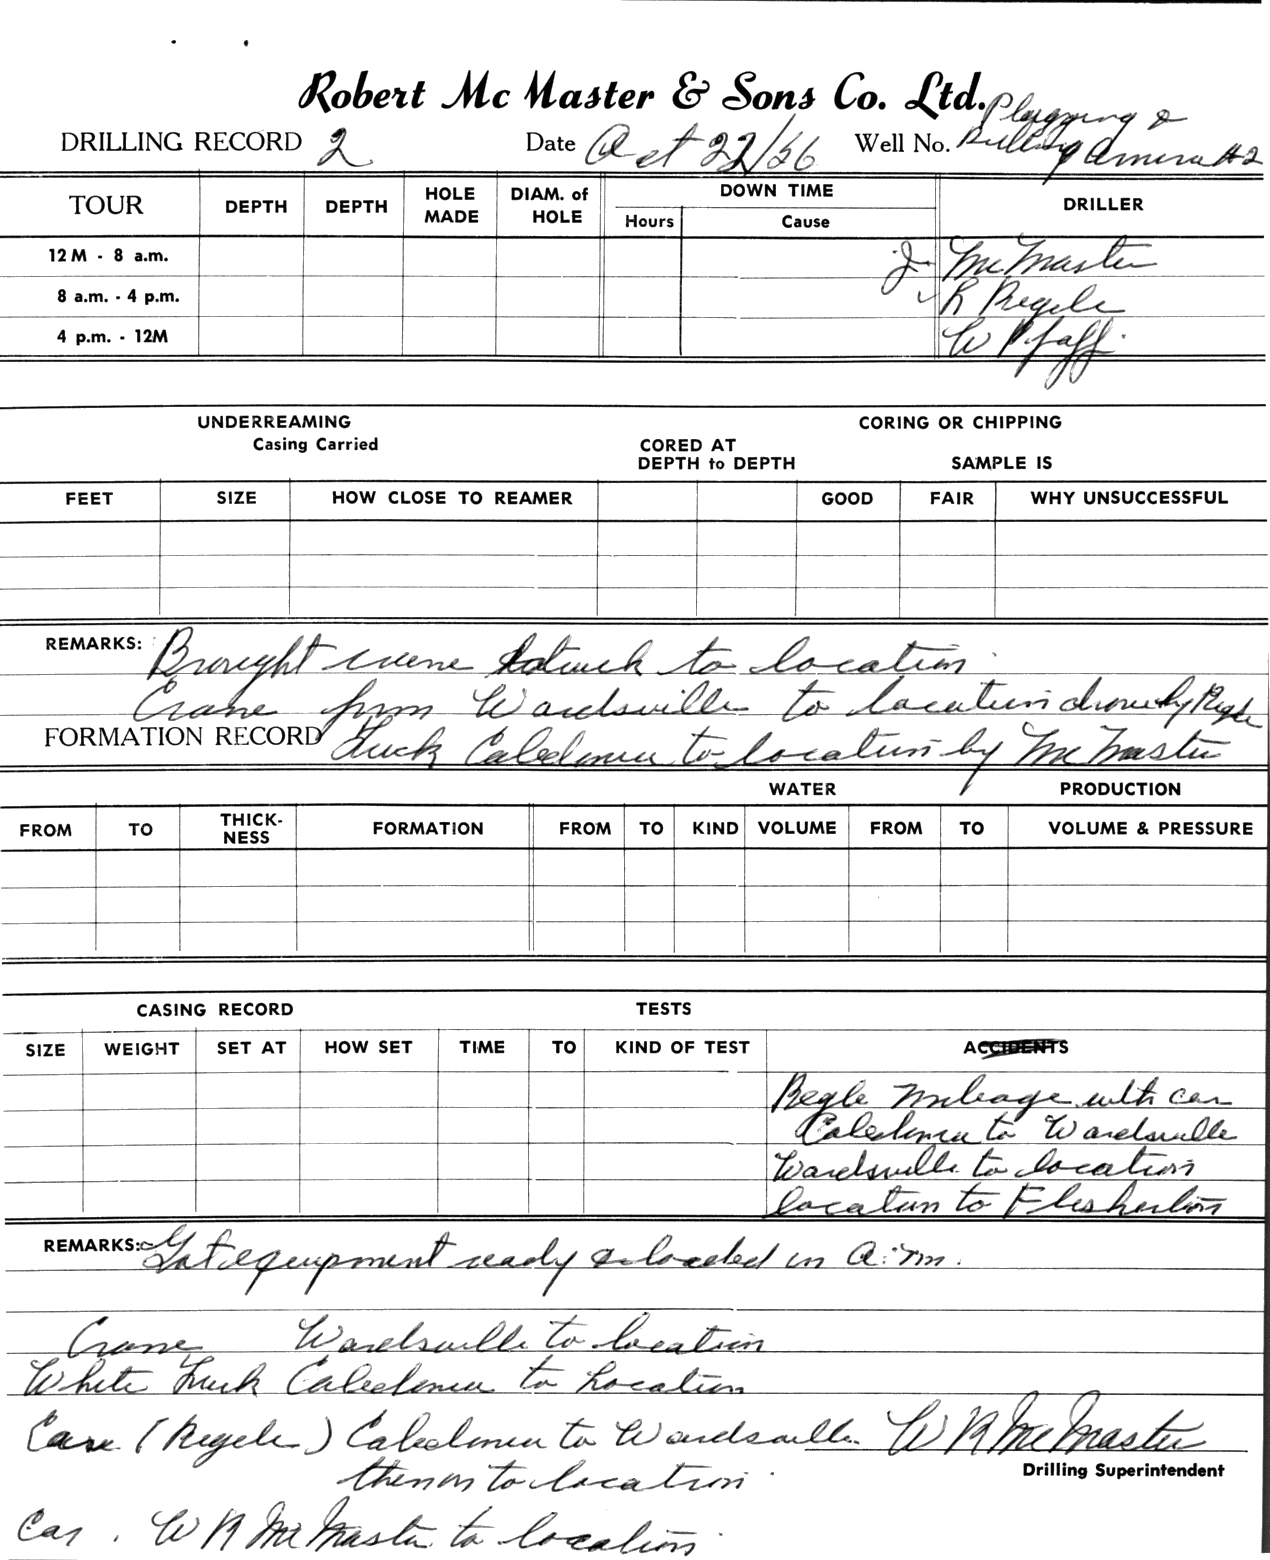 Robert McMaster & Sons Co. Ltd.
DRILLING RECORD 2 Date Oct 22/56 Well No. Plugging &
Drilling Amera #2
TOUR DEPTH DEPTH HOLE MADE DIAM. of HOLE DOWN TIME Hours Cause DRILLER
12 M - 8 a.m. J. McMaster
8 a.m. - 4 p.m. R Regele
4 p.m. - 12M W Pfaff
UNDERREAMING CORING OR CHIPPING
Casing Carried CORED AT
DEPTH to DEPTH SAMPLE IS
FEET SIZE HOW CLOSE TO REAMER GOOD FAIR WHY UNSUCCESSFUL
REMARKS: Brought crane & truck to location
Crane from Wardsville to location drove by Regele
FORMATION RECORD Truck Caledonia to location by McMaster
WATER PRODUCTION
FROM TO THICK-NESS FORMATION FROM TO KIND VOLUME FROM TO VOLUME & PRESSURE
CASING RECORD TESTS
SIZE WEIGHT SET AT HOW SET TIME TO KIND OF TEST ACCIDENTS
Regele mileage with car
Caledonia to Wardsville
Wardsville to location
location to Flesherton
REMARKS: Got equipment ready & loaded in a.m.
Crane Wardsville to location
White Truck Caledonia to Location
Car (Regele) Caledonia to Wardsville W R McMaster
Drilling Superintendent
then on to location
Car . W R McMaster to location